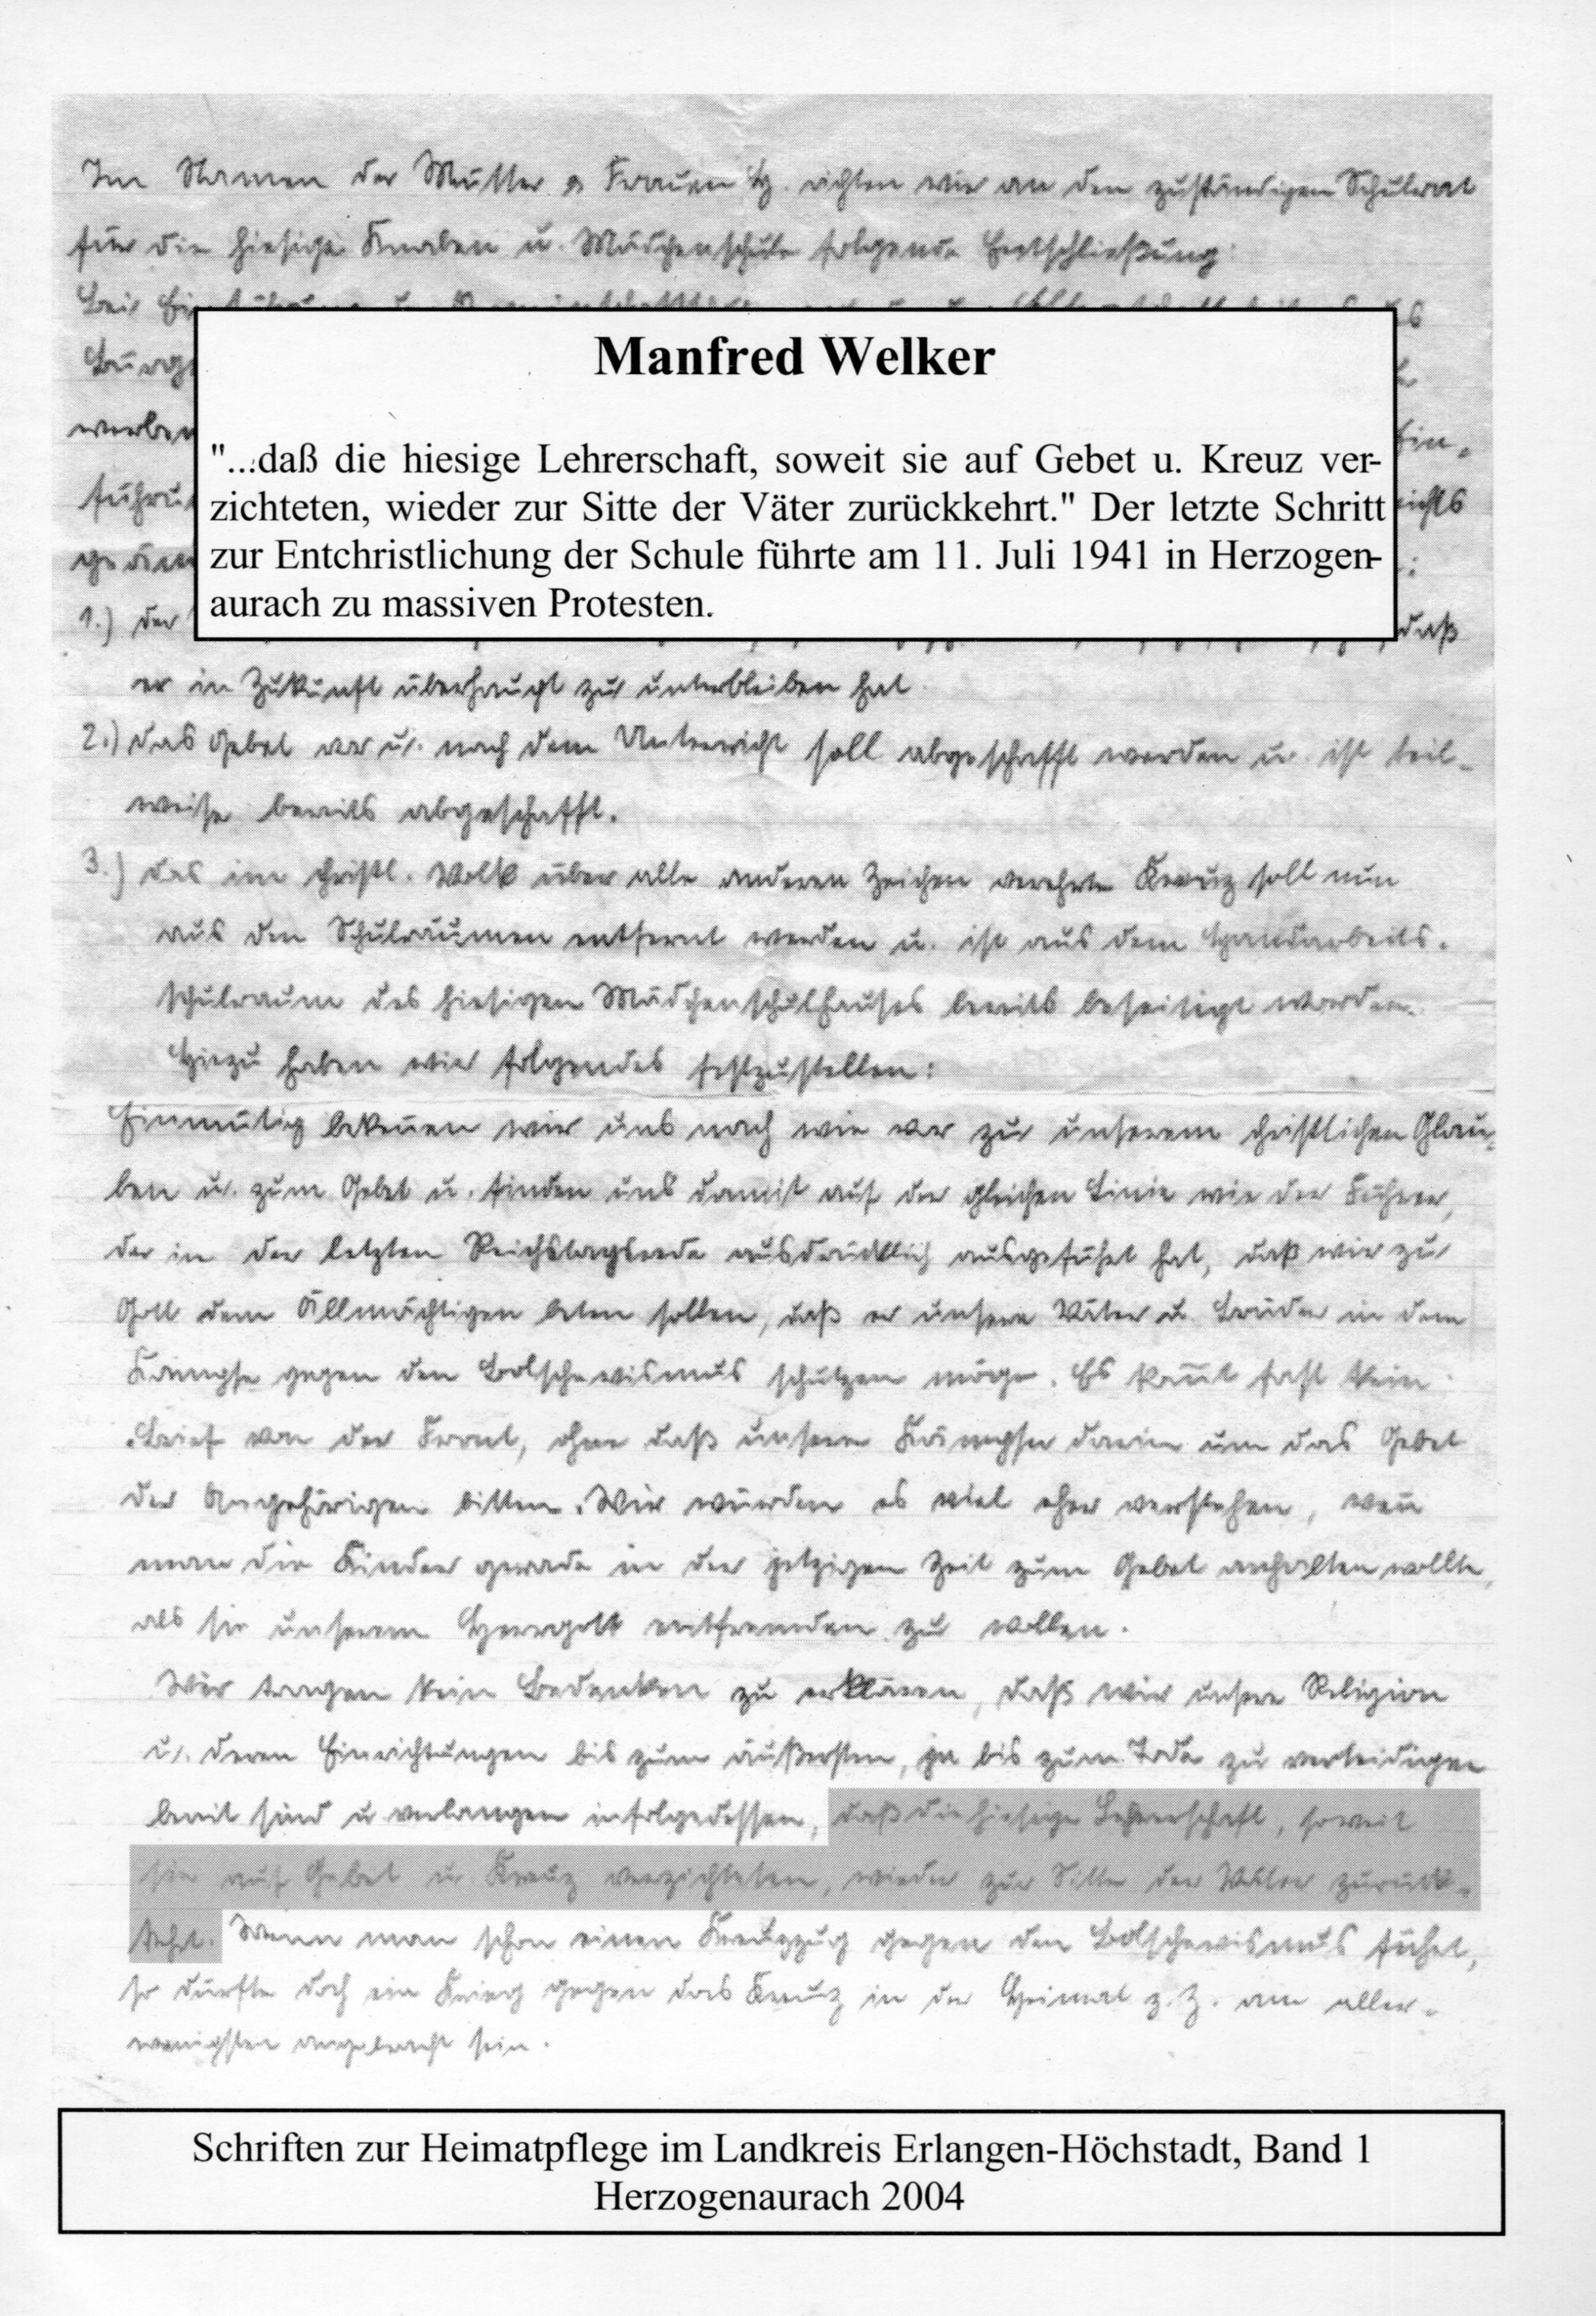 Im Namen der Mütter u Frauen H. richten wir an den zuständigen Schulrat
für die hiesige Knaben u. Mädchenschule folgende Entschließung:
Manfred Welker
"...daß die hiesige Lehrerschaft, soweit sie auf Gebet u. Kreuz ver-
zichteten, wieder zur Sitte der Väter zurückkehrt." Der letzte Schritt
zur Entchristlichung der Schule führte am 11. Juli 1941 in Herzogen-
aurach zu massiven Protesten.
1.) der daß
er in Zukunft überhaupt zu unterbleiben hat.
2.) das Gebet vor u. nach dem Unterricht soll abgeschafft werden u. ist teil-
weise bereits abgeschafft.
3.) das im christl. Volk über alle anderen Zeichen verehrte Kreuz soll nun
aus den Schulräumen entfernt werden u. ist aus dem Handarbeits-
schulraum des hiesigen Mädchenschulhauses bereits beseitigt worden.
Hiezu haben wir folgendes festzustellen:
Einmütig bekeñen wir uns nach wie vor zu unserem christlichen Glau-
ben u. zum Gebet u. finden uns damit auf der gleichen Linie wie der Führer,
der in der letzten Reichstagsrede ausdrücklich ausgeführt hat, daß wir zu
Gott dem Allmächtigen beten sollen, daß er unsere Väter u. Brüder in dem
Kampfe gegen den Bolschewismus schützen möge. Es kom̃t fast kein
Brief von der Front, ohne daß unsere Kämpfer darin um das Gebet
der Angehörigen bitten. Wir würden es viel eher verstehen, weñ
man die Kinder gerade in der jetzigen Zeit zum Gebet anhalten wollte,
als sie unserem Herrgott entfremden zu wollen.
Wir tragen kein Bedenken zu erklären, daß wir unsere Religion
u. deren Einrichtungen bis zum äußersten, ja bis zum Tode zu verteidigen
bereit sind u verlangen infolgedessen, daß die hiesige Lehrerschaft, soweit
sie auf Gebet u. Kreuz verzichteten, wieder zur Sitte der Väter zurück-
kehrt. Wenn man schon einen Kreuzzug gegen den Bolschewismus führt,
so dürfte doch ein Krieg gegen das Kreuz in der Heimat z. Z. am aller-
wenigsten angebracht sein.
Schriften zur Heimatpflege im Landkreis Erlangen-Höchstadt, Band 1
Herzogenaurach 2004